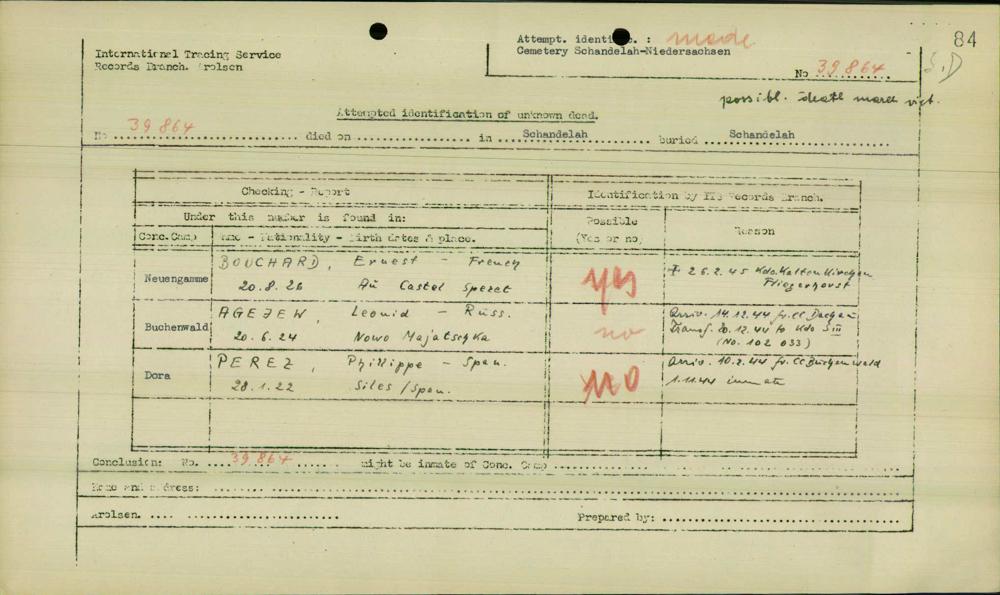 84
International Tracing Service
Records Branch. Arolsen
Attempt. identific. : made
Cemetery Schandelah-Niedersachsen
No 39 864
S.D
possibl. death march vict.
Attempted identification of unknown dead.
No 39 864 died on in Schandelah buried Schandelah
Checking - Report
Identification by ITS Records Branch.
Under this number is found in:
Possible
(Yes or no)
Reason
Conc.Camp
Name - Nationality - Birth dates & place.
Neuengamme
BOUCHARD, Ernest - French
20.8.26 Au Castel Speret
yes
† 26.2.45 Kdo. Kaltenkirchen
Fliegerhorst
Buchenwald
AGEJEW, Leonid - Russ.
20.6.24 Nowo Majatschka
no
Arriv. 14.12.44 fr. CC Dachau
Transf. 20.12.44 to Kdo SIII
(No. 102 033)
Dora
PEREZ, Phillippe - Span.
28.1.22 Siles /Span.
NO
Arriv. 10.2.44 fr. CC Buchenwald
1.11.44 inmate
Conclusion: No. 39 864 might be inmate of Conc. Camp
Name and address:
Arolsen.
Prepared by: